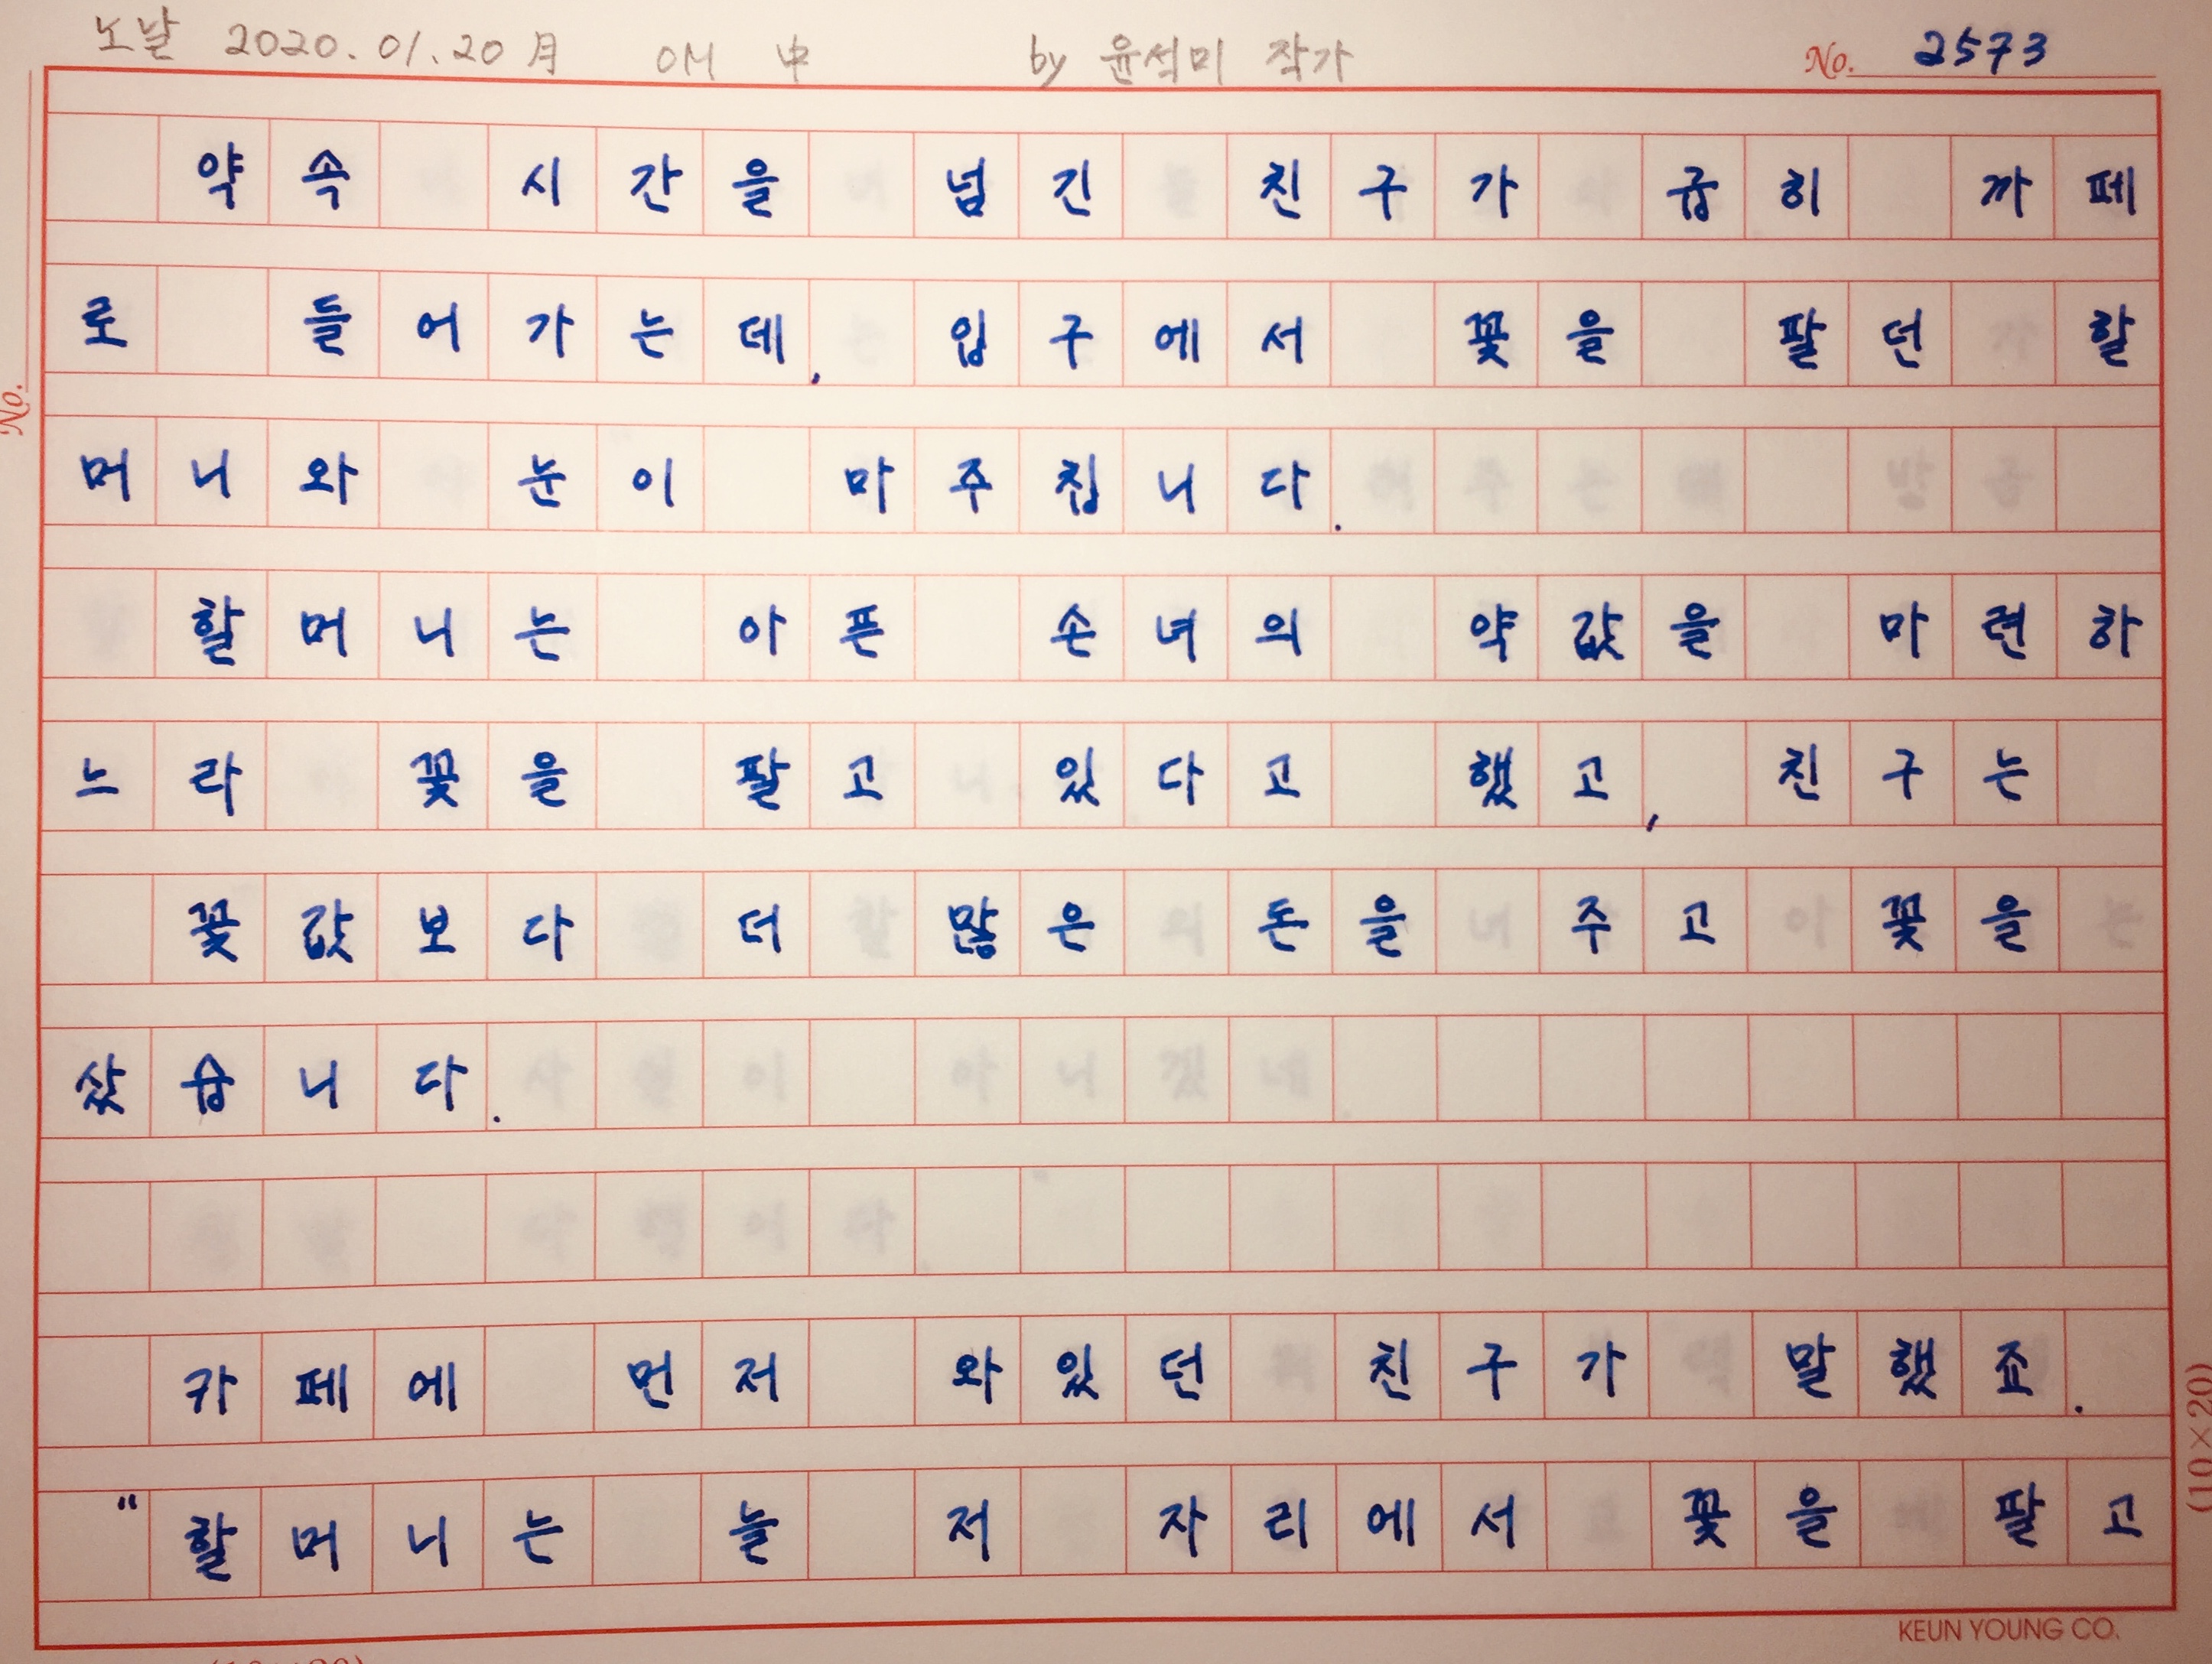 노날 2020.01.20 月 OM 中 by 윤석미 작가 No. 2573
약속 시간을 넘긴 친구가 급히 까페
로 들어가는데, 입구에서 꽃을 팔던 할
머니와 눈이 마주칩니다.
할머니는 아픈 손녀의 약값을 마련하
느라 꽃을 팔고 있다고 했고, 친구는
꽃값보다 더 많은 돈을 주고 꽃을
샀습니다.
카페에 먼저 와있던 친구가 말했죠.
"할머니는 늘 저 자리에서 꽃을 팔고
KEUN YOUNG CO.
No.
(10×20)